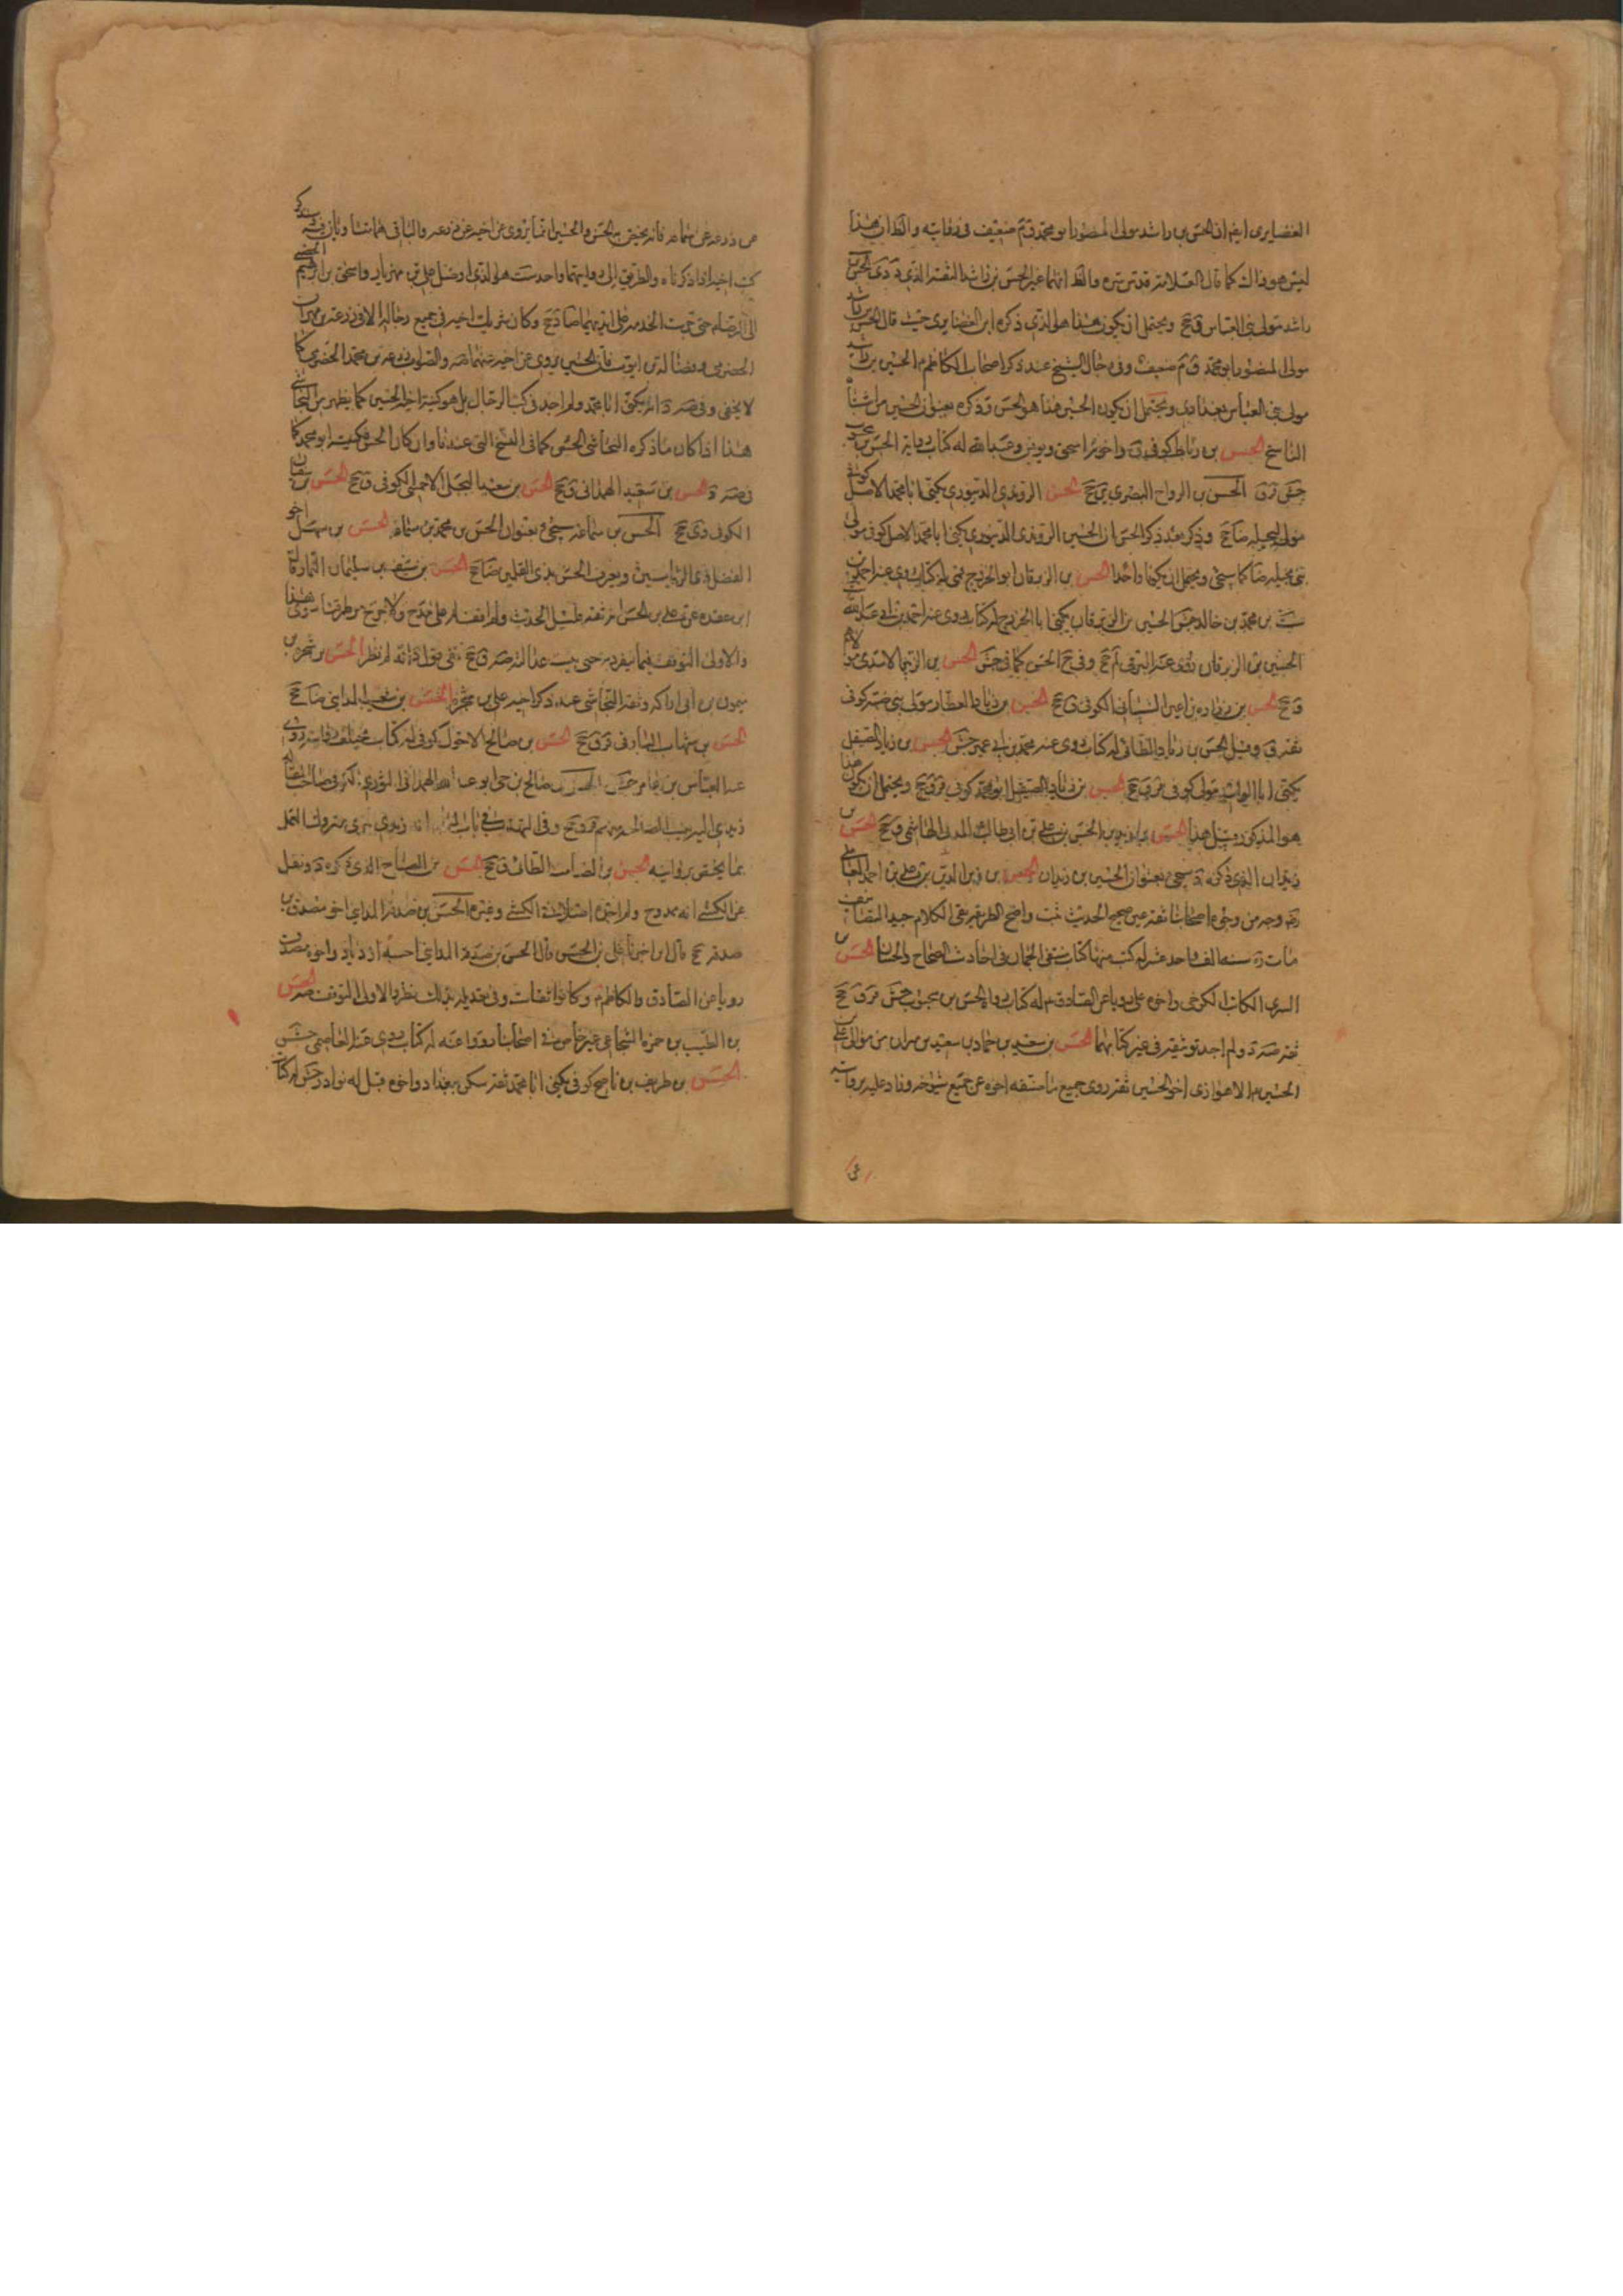 الغضايرى ايضا ان الحسن بن راشد مولى المنصور ابو محمد ضعيف فى رواياته والظ ان هذا
ليس هو ذاك كما قال العلامة قدس سره والظ انهما غير الحسن بن راشد الثقة الذى الحسن بن
راشد مولى بنى العباس ق جخ ويحتمل ان يكون هذا هو الذى ذكره ابن الغضايرى حيث قال الحسن بن راشد
مولى المنصور ابو محمد ق م ضعيف وفى رجال الشيخ عند ذكر اصحاب الكاظم م الحسين بن راشد
مولى بنى العباس بغدادى ويحتمل ان يكون الحسين هنا هو الحسن وذكره بعنوان الحسين من اشتباه
الناسخ الحسن بن رباط كوفى ق واخوته اسحق ويونس وعبد الله له كتاب رواية الحسن بن محبوب
جش ق الحسن بن الرواح البصرى ق جخ الحسن الدينورى يكنى ابا محمد الاصل كوفى
مولى لبجيلة ضا جخ وذكر بعد ذكر الحسن ان الحسين الدينورى يكنى ابا محمد الاصل كوفى مولى
بنى بجيلة ضا كما سيجئ ويحتمل ان يكونا واحدا الحسن بن الزبرقان ابو الخزرج قمى له كتاب روى عنه احمد بن
بن محمد بن خالد جش الحسين بن الزبرقان يكنى ابا الخزرج له كتاب روى عنه احمد بن ابى عبد الله
الحسين بن الزبرقان روى عنه البرقى لم جخ وفى جخ الحسن كما فى جش الحسن بن الاسدى مولاهم
ق جخ الحسن بن زرارة بن اعين الشيبانى الكوفى ق جخ الحسن بن زياد العطار مولى بنى ضبة كوفى
ثقة ق وقيل الحسن بن زياد الطائى له كتاب روى عنه محمد بن ابى عمير جش الحسن بن زياد الصيقل
يكنى ابا الوليد مولى كوفى قر ق جخ الحسن بن زياد الصيقل ابو محمد كوفى قر ق جخ ويحتمل ان يكون هذا
هو المذكور قبل هذا الحسن بن زيد بن الحسن بن على بن ابى طالب المدنى الهاشمى ق جخ الحسن بن
زيدان الذى ذكره سيجئ بعنوان الحسين بن زيدان الحسن بن زين الدين بن على بن احمد العاملى
ره وجه من وجوه اصحابنا ثقة عين صحيح الحديث ثبت واضح الطريقة نقى الكلام جيد التصانيف
مات ره سنه الف واحد عشر له كتب منها كتاب منتقى الجمان فى احاديث الصحاح والحسان الحسن بن
السرى الكاتب الكرخى واخوه على رويا عن الصادق م له كتاب رواه الحسن بن محبوب جش قر ق جخ
ثقة ولم اجد توثيقه فى غير كتابهما الحسن بن سعيد بن حماد بن سعيد بن مهران من موالى على بن
الحسين م الاهوازى اخو الحسين ثقة روى جميع ما صنفه اخوه عن جميع شيوخه وزاد عليه بروايته
عن
عن زرعة عن سماعة فانه يختص به الحسن والحسين انما يروى عن اخيه عن زرعة والباقى هما متساويان فيه
كتب اخيه اذا ذكرناه والطريق الى روايتهما واحد هو الذى اوصل على بن مهزيار واسحق بن ابراهيم الحضينى
الى الرضا م حتى جرت الخدمة على ايديهما ضا د جخ وكان شريك اخيه فى جميع رجاله الا فى زرعة بن مهران
الحضرمى وفضالة بن ايوب فان الحسين يروى عن اخيه عنهما والصواب زرعة بن محمد الحضرمى كما
لا يخفى وفى انه يكنى ابا محمد ولم اجد فى كتب الرجال بل هو كنية اخيه الحسين كما يظهر من النجاشى
هذا اذا كان ما ذكره النجاشى الحسن كما فى النسخ التى عندنا وان كان الحسن فكنيته ابو محمد كما
الحسن بن سعيد الهمدانى ق جخ الحسن بن سعيد البجلى الاحمسى الكوفى ق جخ الحسن بن سفيان
الكوفى ق جخ الحسن بن سماعة سيجئ بعنوان الحسن بن محمد بن سماعة الحسن بن سهل اخو
الفضل ذى الرياستين ويعرف الحسن بذى القلمين ضا جخ الحسن بن سيف بن سليمان التمار قال
ابن عقدة عن على بن الحسن انه ثقة قليل الحديث ولم اقف له على مدح ولا جرح من طرقنا سوى هذا
والاولى التوقف فيما ينفرد به حتى يثبت عدالته الحسن بن شجرة بن
ميمون بن ابى اراكة وثقه النجاشى عند ذكر اخيه على بن شجرة الحسن بن شعيب المداينى ضا جخ
الحسن بن شهاب البارقى قر ق جخ الحسن بن صالح الاحول كوفى له كتاب مختلف روايته روى
عبد العباس بن عامر جش الحسن بن صالح بن حى ابو عبد الله الهمدانى الثورى الكوفى صاحب المقالة
زيدى اليه ينسب الصالحية منهم قر ق جخ وفى التهذيب فى باب المياه انه زيدى بترى متروك العمل
بما يختص بروايته الحسن بن الصامت الطائى ق جخ الحسن بن الصباح الذى ذكره ونقل
عن الكشى انه ممدوح ولم اجده اصلا فى الكشى وغيره الحسن بن صدقة المداينى اخو مصدق بن
صدقة جخ قال اخبرنا على بن الحسن قال الحسن بن صدقة المداينى احسبه ازديا واخوه مصدق
رويا عن الصادق والكاظم م وكانوا ثقات وفى تعديله بذلك نظر والاولى التوقف الحسن
بن الطيب بن حمزة الشجاعى غير خاص فى اصحابنا رووا عنه له كتاب روى عنه العاصمى جش
الحسن بن ظريف بن ناصح كوفى يكنى ابا محمد ثقة سكن ببغداد واخوه قبل له نوادر جش له كتاب